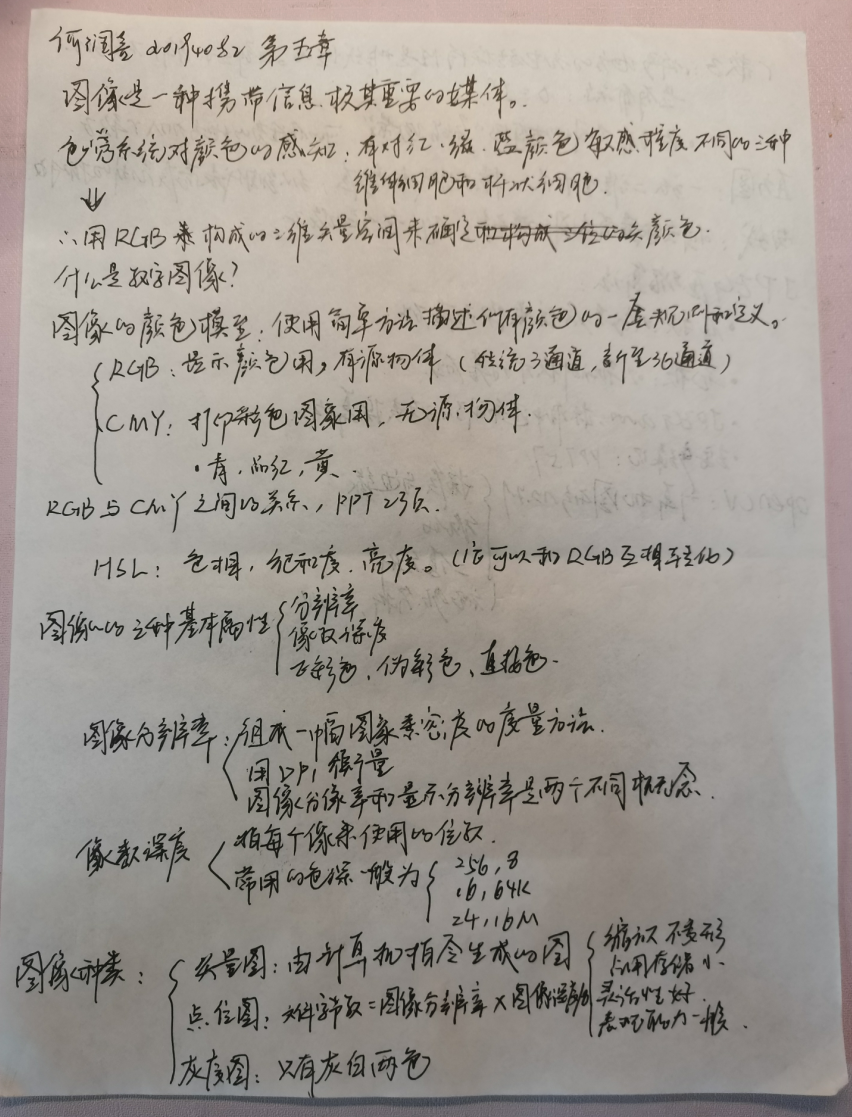 第五章
图像是一种携带信息极其重要的媒体。
色彩系统对颜色的感知：有对红、绿、蓝颜色敏感程度不同的三种
锥体细胞和杆状细胞.
⇓
∴用RGB来构成的三维矢量空间来确定颜色.
什么是数字图像？
图像的颜色模型：使用简单方法描述所有颜色的一套规则和定义。
RGB：显示颜色用，有源物体（传统3通道，新至36通道）
CMY：打印彩色图象用，无源物体.
·青，品红，黄.
RGB与CMY之间的关系，PPT23页.
HSL：色相，饱和度，亮度。（它可以和RGB互相转化）
图像的三种基本属性
分辨率
像数深度
正彩色、伪彩色、直接色.
图像分辨率：组成一幅图象素密度的度量方法.
用DPI 衡量
图像分像率和显示分辨率是两个不同概念.
像数深度
指每个像素使用的位数.
常用的色深一般为
256,8
16,64K
24,16M
图像种类：
矢量图：由计算机指令生成的图
缩放不变形
占用存储小.
灵活性好.
表现能力一般.
点位图：文件字节数=图像分辨率×图像深度/8
灰度图：只有灰白两色